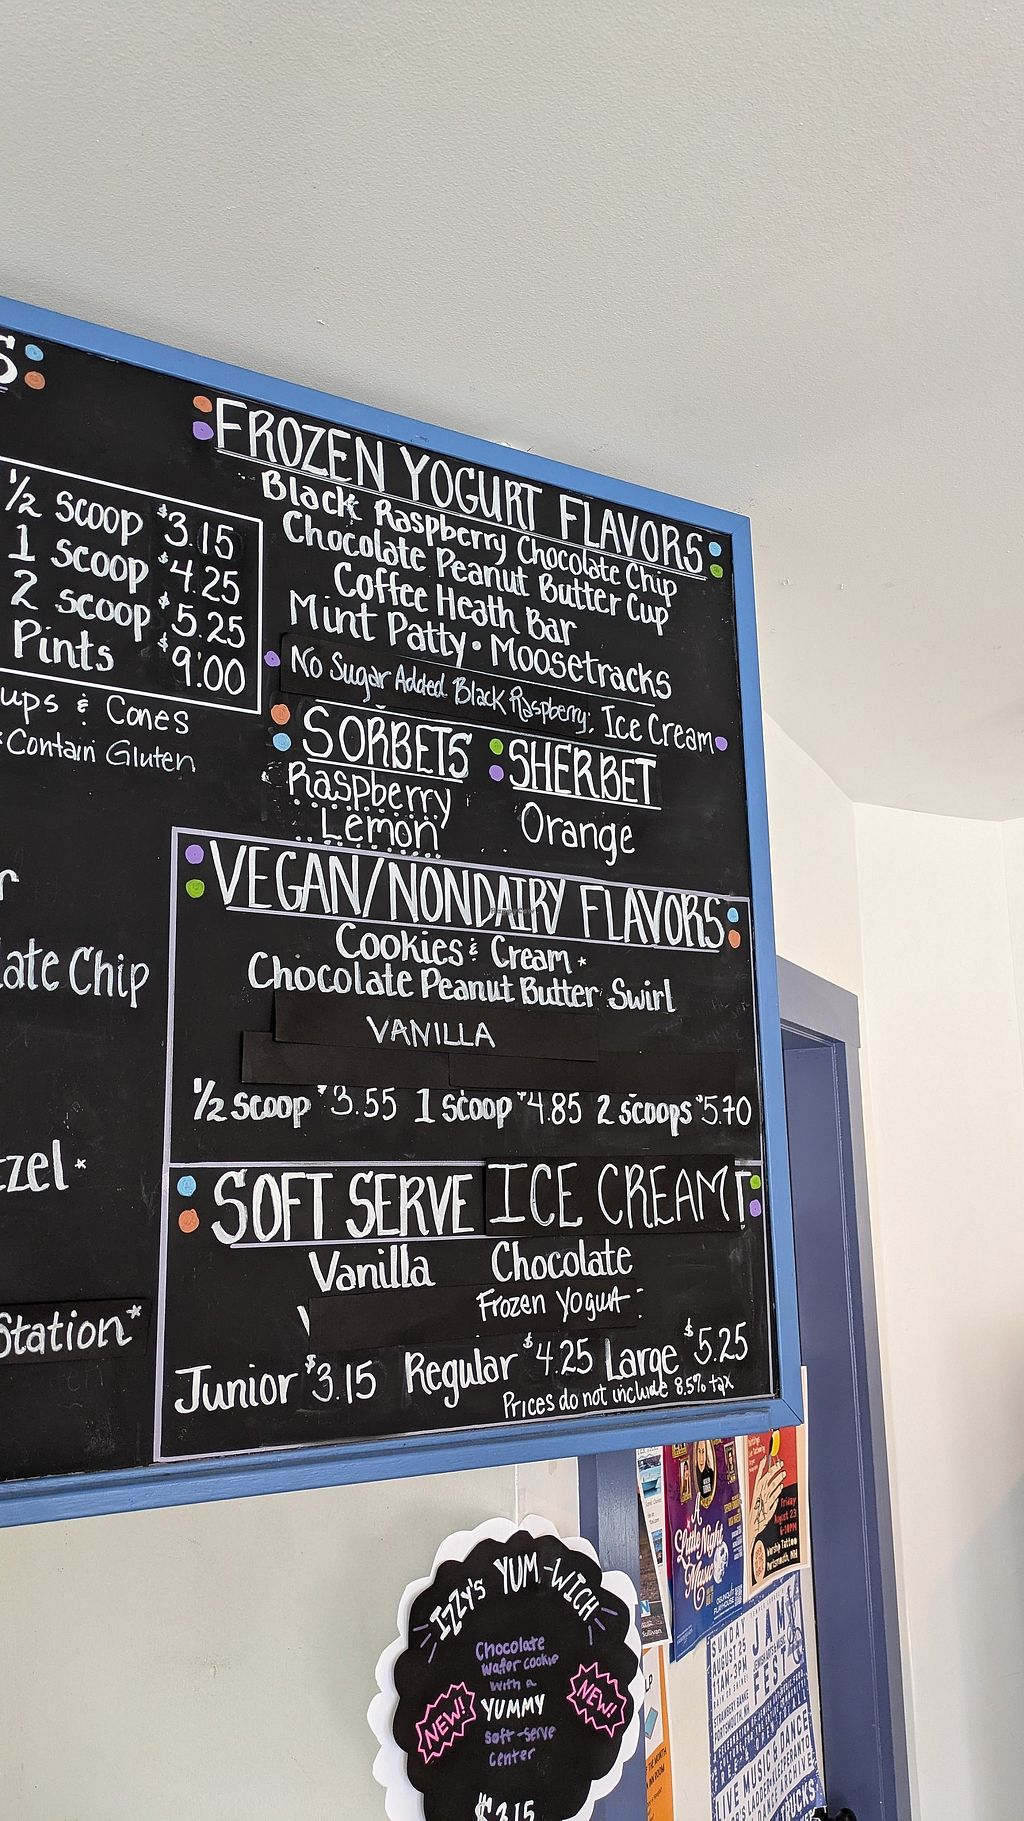 S
½ scoop $3.15
1 scoop $4.25
2 scoop $5.25
Pints $9.00
ups & Cones
*Contain Gluten
r
late Chip
tzel *
Station*
FROZEN YOGURT FLAVORS
Black Raspberry Chocolate Chip
Chocolate Peanut Butter Cup
Coffee Heath Bar
Mint Patty • Moosetracks
No Sugar Added Black Raspberry, Ice Cream
SORBETS
Raspberry
Lemon
SHERBET
Orange
VEGAN/NONDAIRY FLAVORS
Cookies & Cream *
Chocolate Peanut Butter Swirl
VANILLA
½ scoop $3.55 1 scoop $4.85 2 scoops $5.70
SOFT SERVE ICE CREAM T
Vanilla Chocolate
Frozen Yogurt
Junior $3.15 Regular $4.25 Large $5.25
Prices do not include 8.5% tax
Izzy's YUM-WICH
Chocolate
wafer cookie
with a
YUMMY
soft-serve
center
NEW!
NEW!
$3.15
A
Little Night
Music
OGUNQUIT
PLAYHOUSE
Friday
August 23
Worship Tattoo
Portsmouth, NH
SUNDAY
AUGUST 25
11AM-3PM
JAM
FEST
STRAWBERY BANKE
PORTSMOUTH, NH
LIVE MUSIC & DANCE
TRUCKS